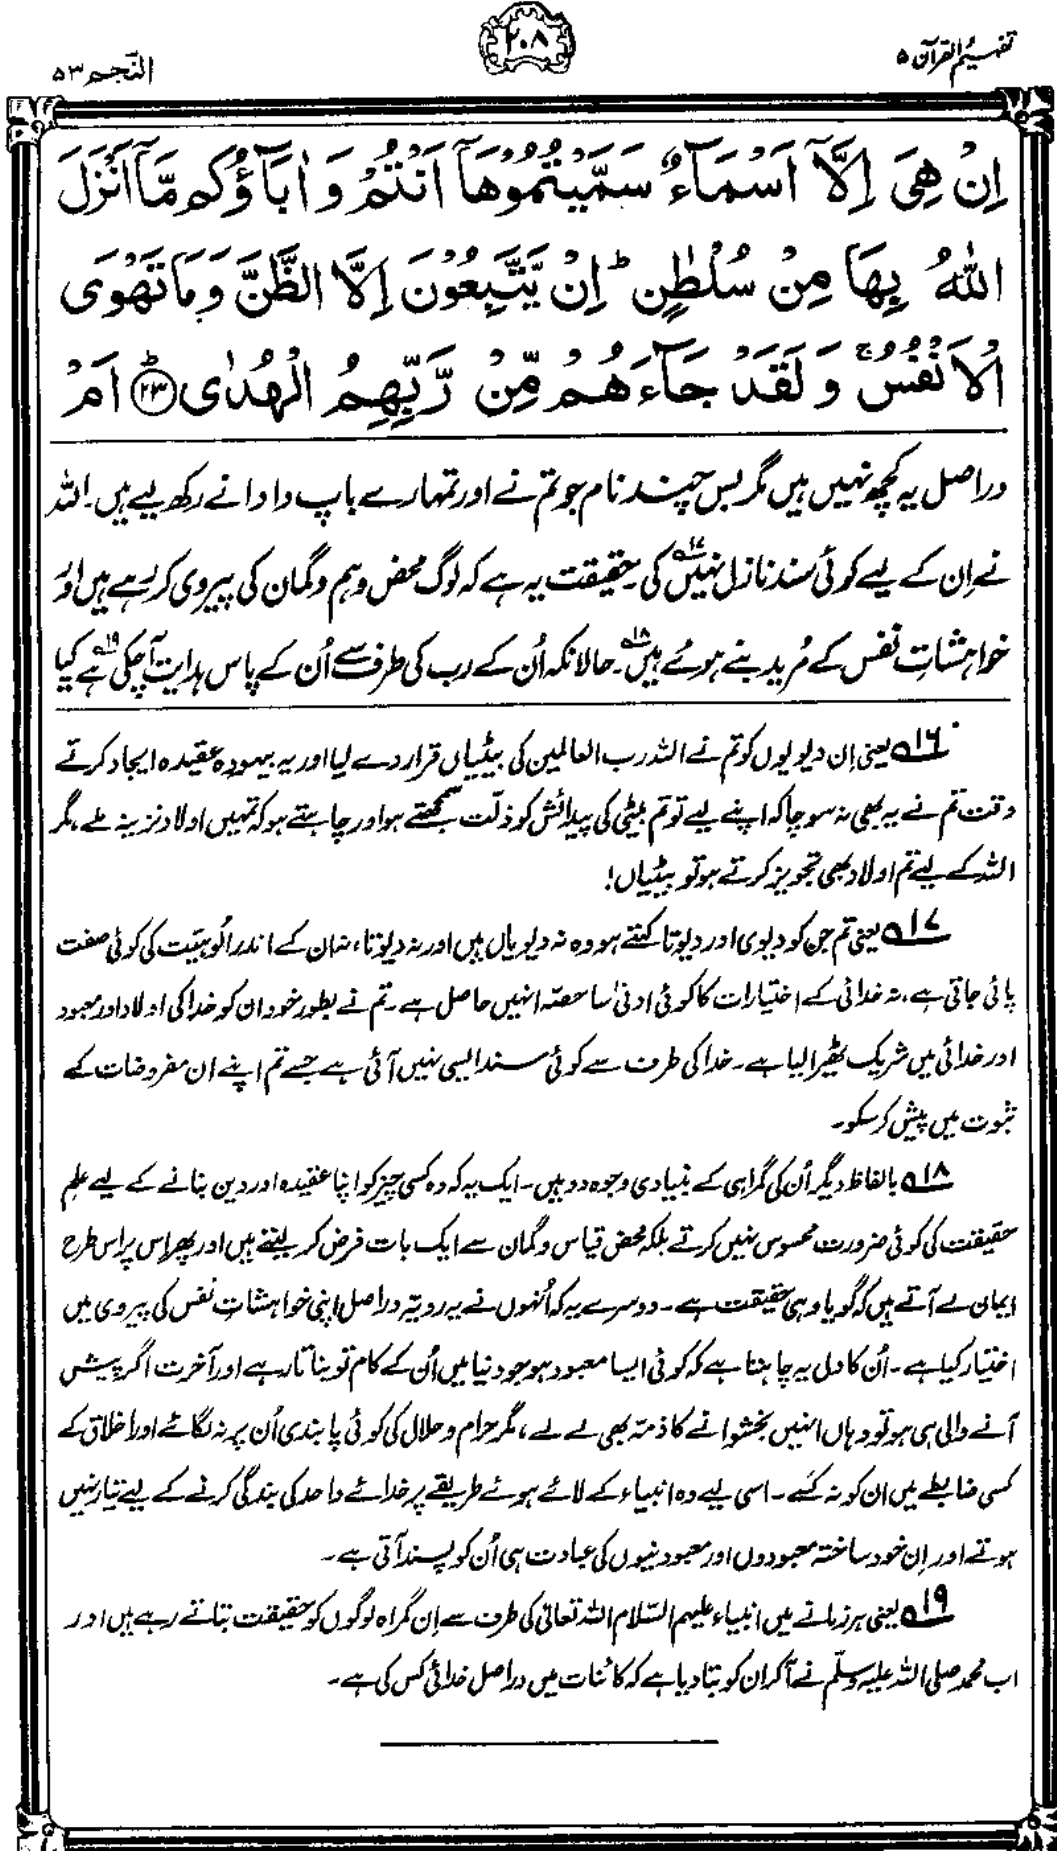 تفہیم القرآن ۵
۲۰۸
النَّجم ۵۳
اِنْ هِيَ اِلَّاۤ اَسْمَآءٌ سَمَّيْتُمُوْهَاۤ اَنْتُمْ وَ اٰبَآؤُكُم مَّاۤ اَنْزَلَ
اللهُ بِهَا مِنْ سُلْطٰنٍ ؕ اِنْ يَّتَّبِعُوْنَ اِلَّا الظَّنَّ وَ مَا تَهْوَى
الْاَنْفُسُ ۚ وَ لَقَدْ جَآءَهُمْ مِّنْ رَّبِّهِمُ الْهُدٰى ؕ﴿۲۳﴾ اَمْ
دراصل یہ کچھ نہیں ہیں مگر بس چند نام جو تم نے اور تمہارے باپ دادا نے رکھ لیے ہیں۔ اللہ
نے اِن کے لیے کوئی سند نازل نہیں کی۱۷۔ حقیقت یہ ہے کہ لوگ محض وہم و گمان کی پیروی کر رہے ہیں اور
خواہشاتِ نفس کے مُرید بنے ہوئے ہیں۱۸۔ حالانکہ اُن کے رب کی طرف سے اُن کے پاس ہدایت آ چکی ہے۱۹۔ کیا
۱۶؎ یعنی اِن دیویوں کو تم نے اللہ رب العالمین کی بیٹیاں قرار دے لیا اور یہ بیہودہ عقیدہ ایجاد کرتے
وقت تم نے یہ بھی نہ سوچا کہ اپنے لیے تو تم بیٹی کی پیدائش کو ذلّت سمجھتے ہو اور چاہتے ہو کہ تمہیں اولاد نرینہ ملے، مگر
اللہ کے لیے تم اولاد بھی تجویز کرتے ہو تو بیٹیاں!
۱۷؎ یعنی تم جن کو دیوی اور دیوتا کہتے ہو وہ نہ دیویاں ہیں اور نہ دیوتا، نہ ان کے اندر اُلوہیّت کی کوئی صفت
پائی جاتی ہے، نہ خدائی کے اختیارات کا کوئی ادنیٰ سا حصّہ انہیں حاصل ہے۔ تم نے بطور خود ان کو خدا کی اولاد اور معبود
اور خدائی میں شریک ٹھیرا لیا ہے۔ خدا کی طرف سے کوئی سند ایسی نہیں آئی ہے جسے تم اپنے ان مفروضات کے
ثبوت میں پیش کر سکو۔
۱۸؎ بالفاظ دیگر اُن کی گمراہی کے بنیادی وجوہ دو ہیں۔ ایک یہ کہ وہ کسی چیز کو اپنا عقیدہ اور دین بنانے کے لیے علمِ
حقیقت کی کوئی ضرورت محسوس نہیں کرتے بلکہ محض قیاس و گمان سے ایک بات فرض کر لیتے ہیں اور پھر اس پر اس طرح
ایمان لے آتے ہیں کہ گویا وہی حقیقت ہے۔ دوسرے یہ کہ اُنہوں نے یہ رویّہ دراصل اپنی خواہشاتِ نفس کی پیروی میں
اختیار کیا ہے۔ اُن کا دل یہ چاہتا ہے کہ کوئی ایسا معبود ہو جو دنیا میں اُن کے کام تو بناتا رہے اور آخرت اگر پیش
آنے والی ہی ہو تو وہاں انہیں بخشوانے کا ذمّہ بھی لے لے، مگر حرام و حلال کی کوئی پابندی اُن پر نہ لگائے اور اخلاق کے
کسی ضابطے میں ان کو نہ کَسے۔ اسی لیے وہ انبیاء کے لائے ہوئے طریقے پر خدائے واحد کی بندگی کرنے کے لیے تیار نہیں
ہوتے اور اِن خود ساختہ معبودوں اور معبودنیوں کی عبادت ہی اُن کو پسند آتی ہے۔
۱۹؎ یعنی ہر زمانے میں انبیاء علیہم السّلام اللہ تعالیٰ کی طرف سے اِن گمراہ لوگوں کو حقیقت بتاتے رہے ہیں اور
اب محمد صلی اللہ علیہ وسلّم نے آ کر ان کو بتا دیا ہے کہ کائنات میں دراصل خدائی کس کی ہے۔